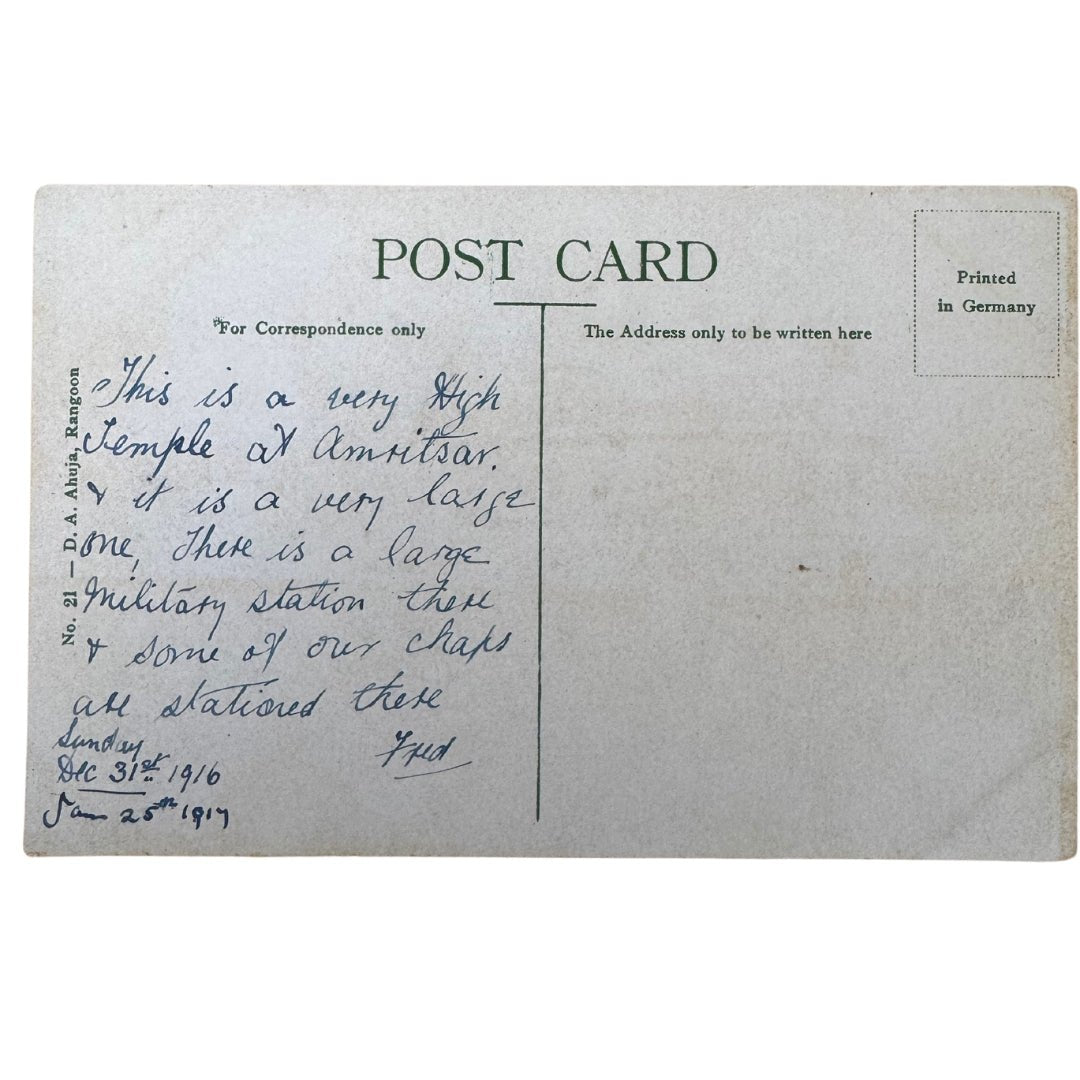 POST CARD
Printed
in Germany
For Correspondence only
The Address only to be written here
No. 21 — D. A. Ahuja, Rangoon
This is a very High
Temple at Amritsar.
& it is a very large
one, There is a large
Military station there
& some of our chaps
are stationed there
Fred
Sunday
Dec 31st 1916
Jan 25th 1917